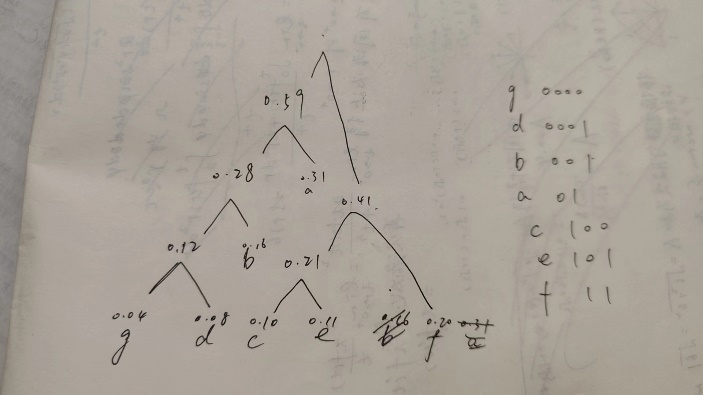 0.59
0.28
0.31
a
0.41
0.12
0.16
b
0.21
0.04
g
0.08
d
0.10
c
0.11
e
0.16
b
0.20
f
0.31
a
g 0000
d 0001
b 001
a 01
c 100
e 101
f 11